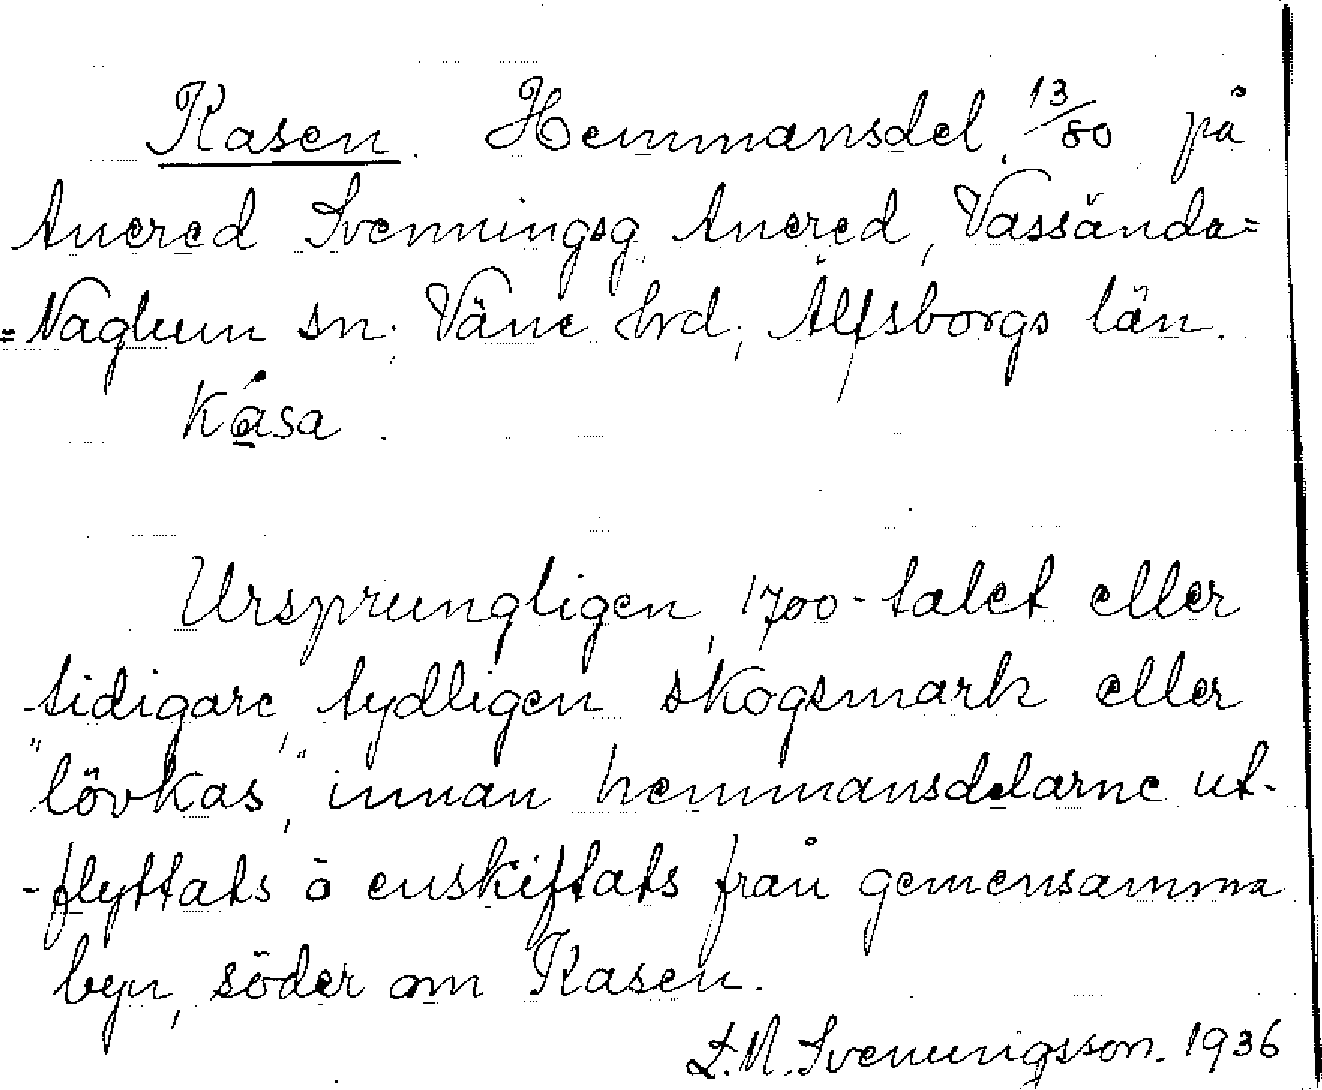 Kasen. Hemmansdel, 13/80 på
Anered Svenningsg. Anered, Vassända=
=Naglum sn. Väne hrd, Älfsborgs län.
Kása.
Ursprungligen, 1700-talet eller
tidigare, tydligen skogsmark eller
"lövkas," innan hemmansdelarne ut-
-flyttats o enskiftats från gemensamma
byn, söder om Kasen.
L.M. Svenningsson. 1936